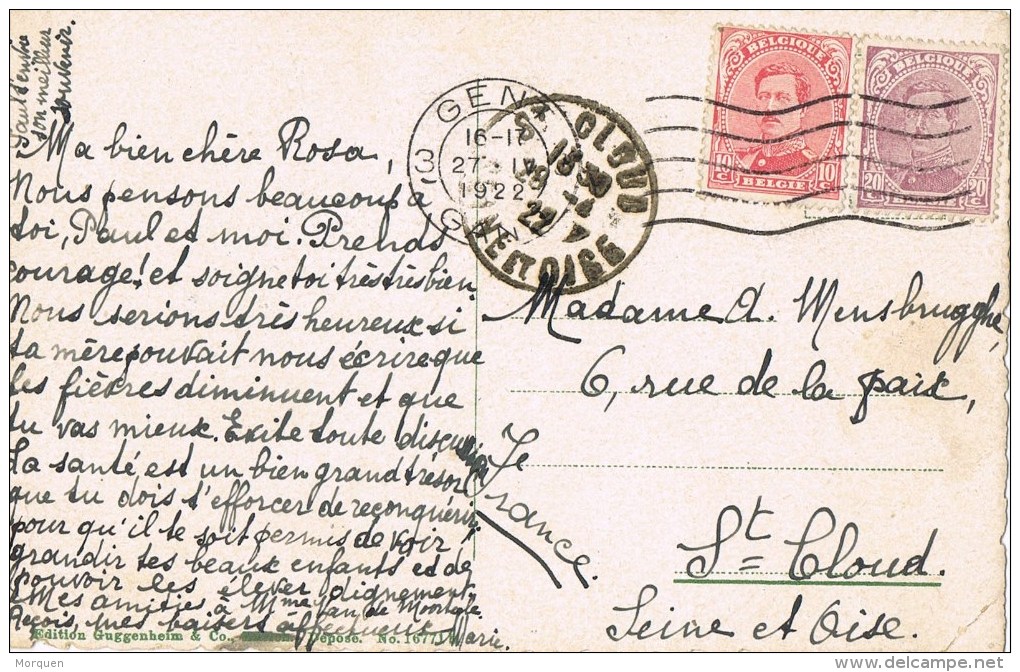 Paul t'envoie
son meilleur
souvenir.
Ma bien chère Rosa,
Nous pensons beaucoup à
toi, Paul et moi. Prends
courage! et soigne toi très très bien.
Nous serions très heureux si
ta mère pouvait nous écrire que
les fièvres diminuent et que
tu vas mieux. Evite toute discussion
La santé est un bien grand trésor
que tu dois t'efforcer de reconquérir
pour qu'il te soit permis de voir
grandir tes beaux enfants et de
pouvoir les élever dignement.
Mes amitiés à Mme Van de
Reçois, mes baisers affectueux Marie.
Edition Guggenheim & Co., Déposé. No. 16771
GENT
16-17
27
1922
3
GAND
ST CLOUD
ET OISE
BELGIQUE
10 10
BELGIE
BELGIQUE
20 20
Madame A. Mensbrugghe,
6, rue de la paix,
St Cloud.
Seine et Oise.
France.
Morquen
delcampe.net